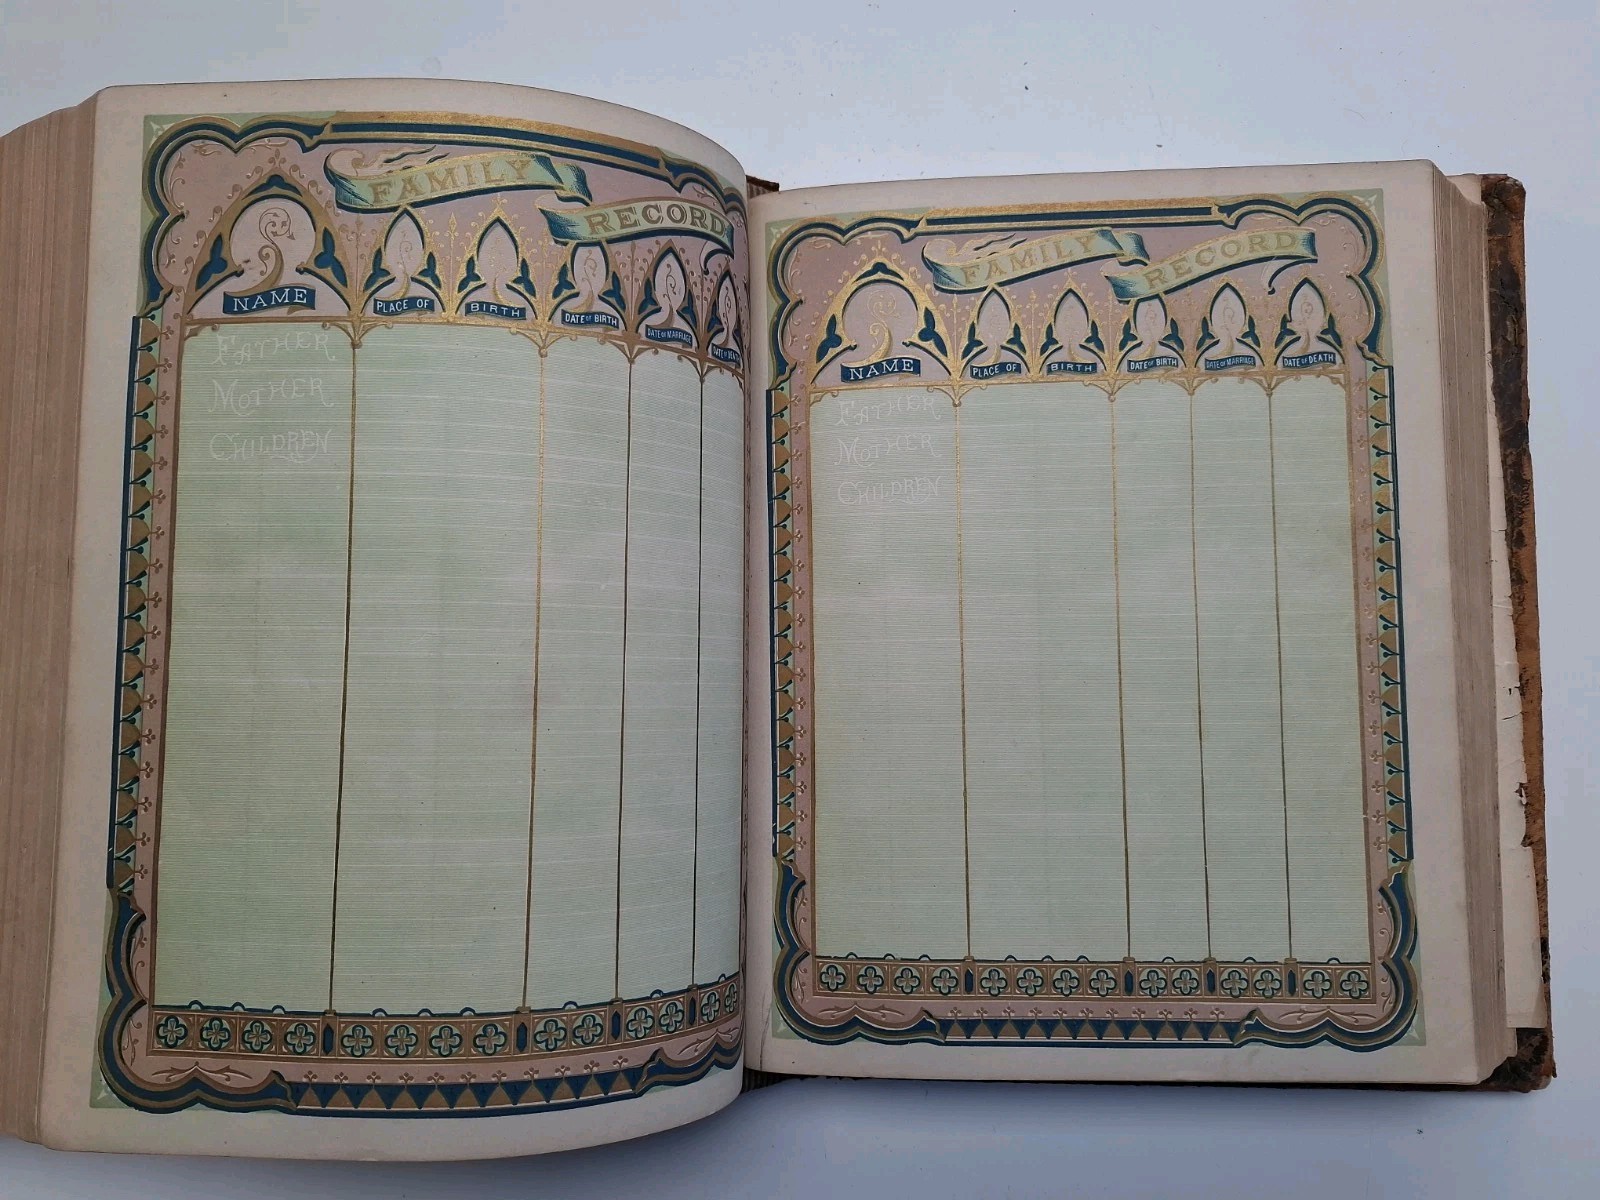 FAMILY
RECORD
NAME
PLACE OF
BIRTH
DATE OF BIRTH
DATE OF MARRIAGE
DATE OF DEATH
FATHER
MOTHER
CHILDREN
FAMILY
RECORD
NAME
PLACE OF
BIRTH
DATE OF BIRTH
DATE OF MARRIAGE
DATE OF DEATH
FATHER
MOTHER
CHILDREN